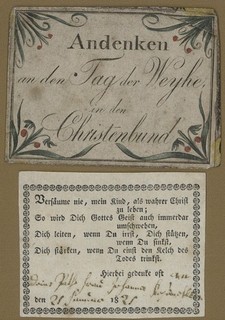 Andenken
an den Tag der Weyhe,
in den
Christenbund
Versäume nie, mein Kind, als wahrer Christ
zu leben;
So wird Dich Gottes Geist auch immerdar
umschweben,
Dich leiten, wenn Du irrst, Dich stützen,
wenn Du sinkst,
Dich stärken, wenn Du einst den Kelch des
Todes trinkst.
Hierbei gedenke oft
den 18